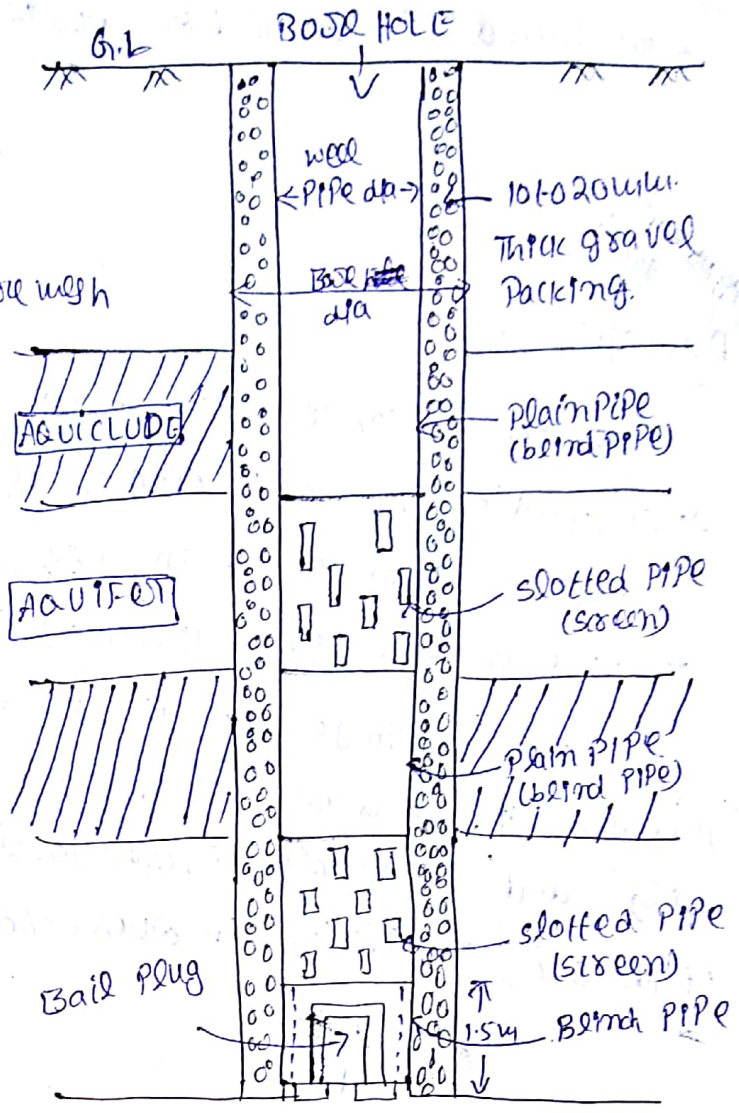 G.L
BORE HOLE
well
PIPE dia
10 to 20 mm.
Thick gravel
Packing.
mesh
Bore hole
dia
AQUICLUDE
Plain PIPE
(blind PIPE)
AQUIFER
slotted PIPE
(screen)
Plain PIPE
(blind PIPE)
slotted PIPE
(screen)
Bail Plug
1.5m
Blind PIPE